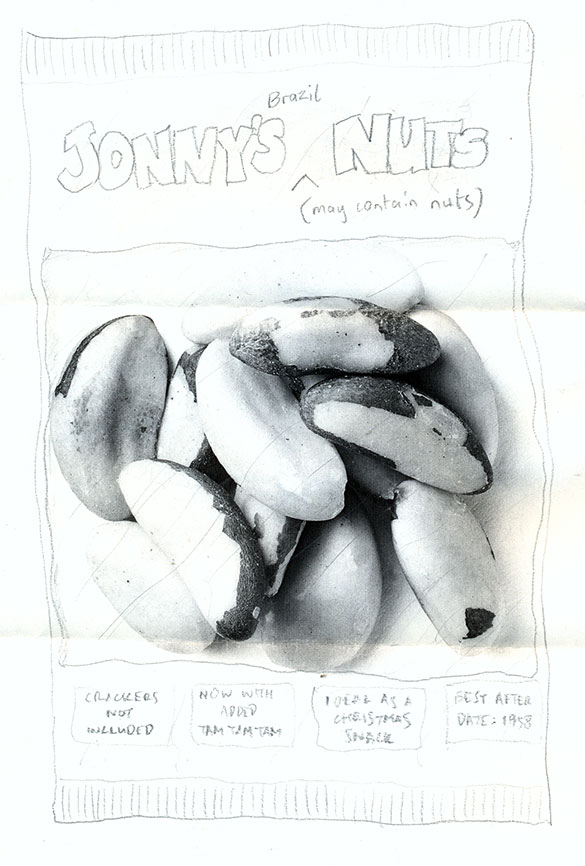 Brazil
JONNY'S NUTS
(may contain nuts)
CRACKERS
NOT
INCLUDED
NOW WITH
ADDED
TAM TAM TAM
IDEAL AS A
CHRISTMAS
SNACK
BEST AFTER
DATE: 1958